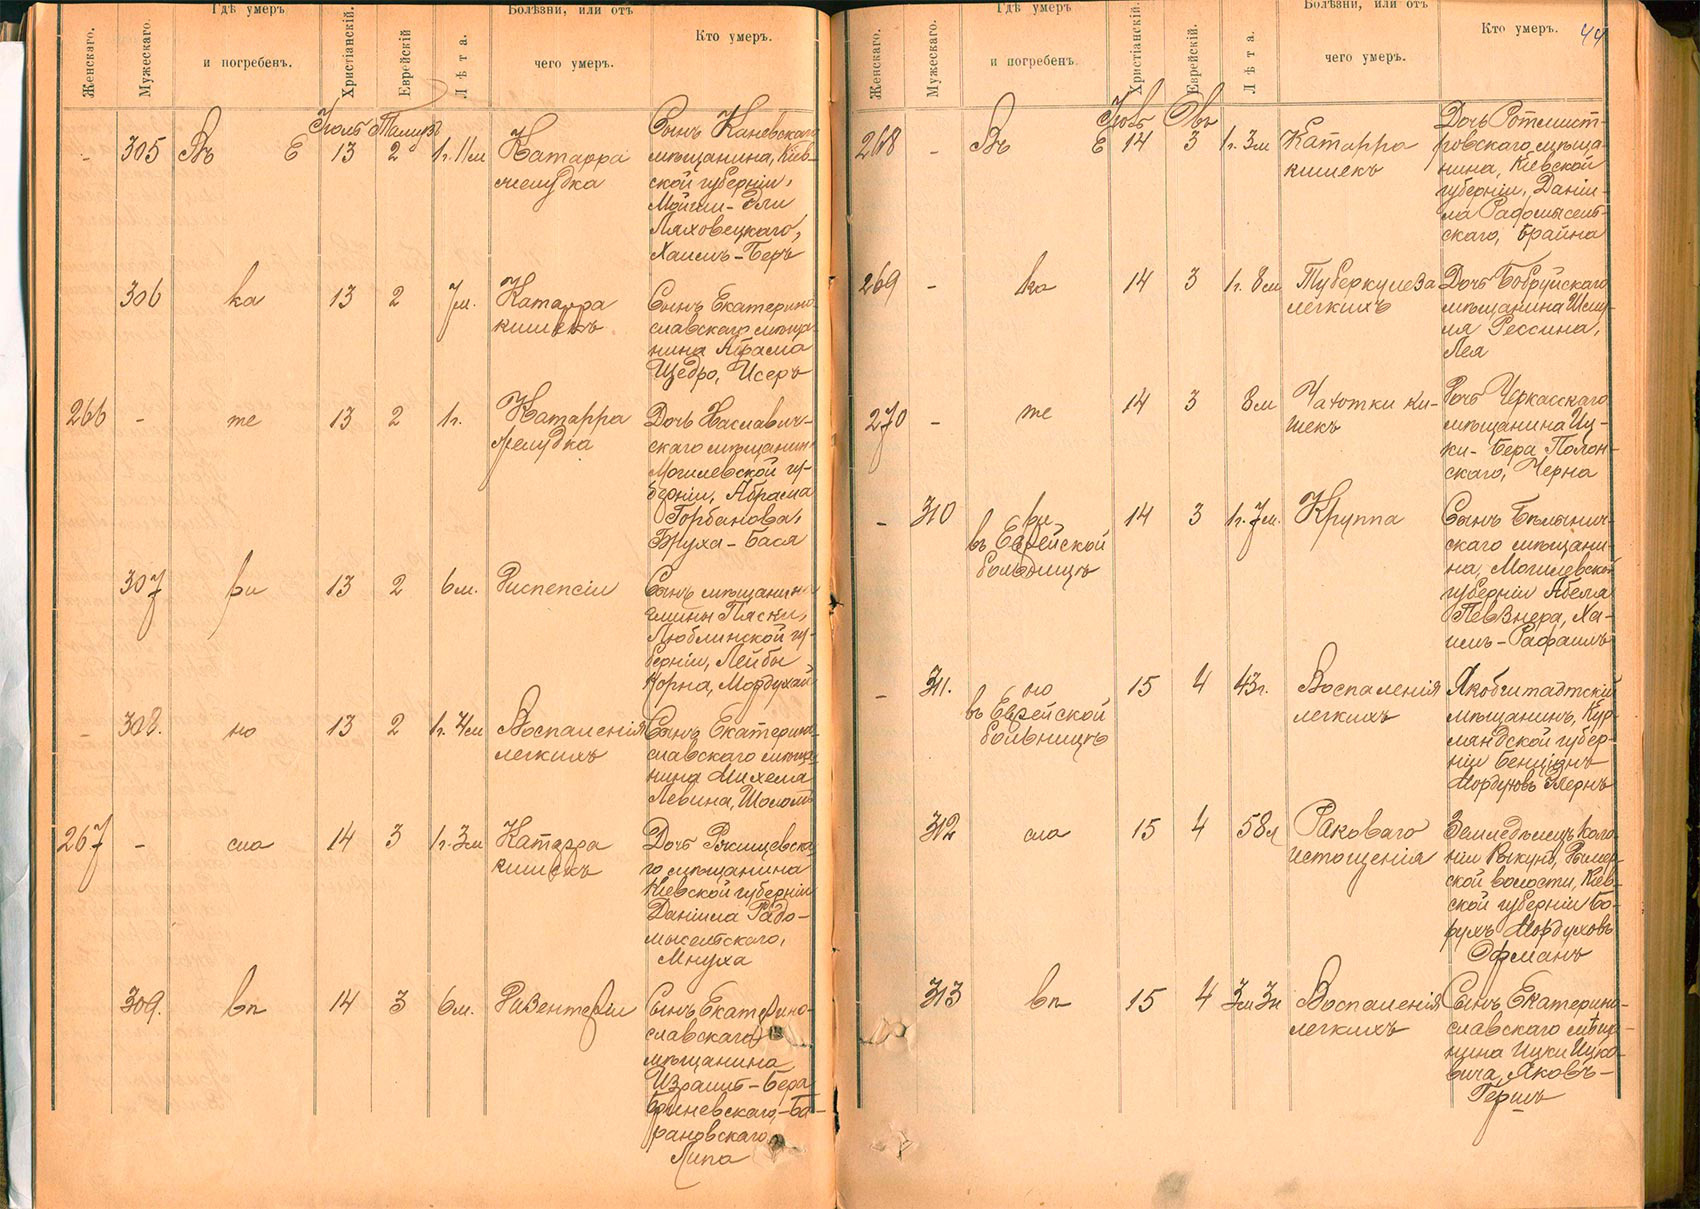 Женскаго.
Мужескаго.
Гдѣ умеръ
и погребенъ.
Христіанскій.
Еврейскій
Лѣта.
Болѣзни, или отъ
чего умеръ.
Кто умеръ.
Іюль Тамузъ
- 305 Въ Е 13 2 1г. 11м
Катарра
желудка
Сынъ Каневскаго
мѣщанина, Кіев-
ской губерніи,
Мойши-Эли
Ляховецкаго,
Хаимъ-Беръ
306 ка 13 2 7м.
Катарра
кишекъ
Сынъ Екатерино-
славскаго мѣща-
нина Абрама
Щедро, Исеръ
266 - те 13 2 1г.
Катарра
желудка
Дочь Хаславич-
скаго мѣщанина
Могилевской гу-
берніи, Абрама
Горбанова,
Бруха-Бася
307 ри 13 2 6м.
Диспепсіи
Сынъ мѣщанина
гмины Пяски,
Люблинской гу-
берніи, Лейбы
Корна, Мордухай
- 308. но 13 2 1г. 4м
Воспаленія
легкихъ
Сынъ Екатерино-
славскаго мѣща-
нина Михеля
Левина, Шоломъ
267 - сла 14 3 1г. 3м
Катарра
кишекъ
Дочь Ржищевска-
го мѣщанина
Кіевской губерніи
Даніила Радо-
мысельскаго,
Мнуха
309. вп 14 3 6м.
Дизентеріи
Сынъ Екатерино-
славскаго
мѣщанина
Израиль-Бера
-Ба-
рановскаго,
Липа
Женскаго.
Мужескаго.
Гдѣ умеръ
и погребенъ.
Христіанскій.
Еврейскій.
Лѣта.
Болѣзни, или отъ
чего умеръ.
Кто умеръ.
44
Іюль Овъ
268 - Въ Е 14 3 1г. 3м
Катарра
кишекъ
Дочь Ротмист-
ровскаго мѣща-
нина, Кіевской
губерніи, Даніи-
ла Радомысель-
скаго, Брайна
269 - ка 14 3 1г. 8м
Туберкулеза
легкихъ
Дочь Бобруйскаго
мѣщанина Шму-
ля Рессина,
Лея
270 - те 14 3 8м
Чахотки ки-
шекъ
Дочь Черкасскаго
мѣщанина Иц-
ки-Бера Полон-
скаго, Черна
- 310 ри 14 3 1г. 7м.
въ Еврейской
больницѣ
Круппа
Сынъ Бѣлынич-
скаго мѣщани-
на, Могилевской
губерніи Абеля
Певзнера, Ха-
имъ-Рафаилъ
- 311. но 15 4 43г.
въ Еврейской
больницѣ
Воспаленія
легкихъ
Якобштадтскій
мѣщанинъ, Кур-
ляндской губер-
ніи Бенціонъ
Мордуховъ
312 сла 15 4 58л
Раковаго
истощенія
Земледѣлецъ коло-
ніи
ской волости, Кіев-
ской губерніи Бо-
рухъ Мордуховъ
Офманъ
313 вп 15 4 3м 3н
Воспаленія
легкихъ
Сынъ Екатерино-
славскаго мѣща-
нина Ицки Ицко-
вича, Яковъ-
Гершъ